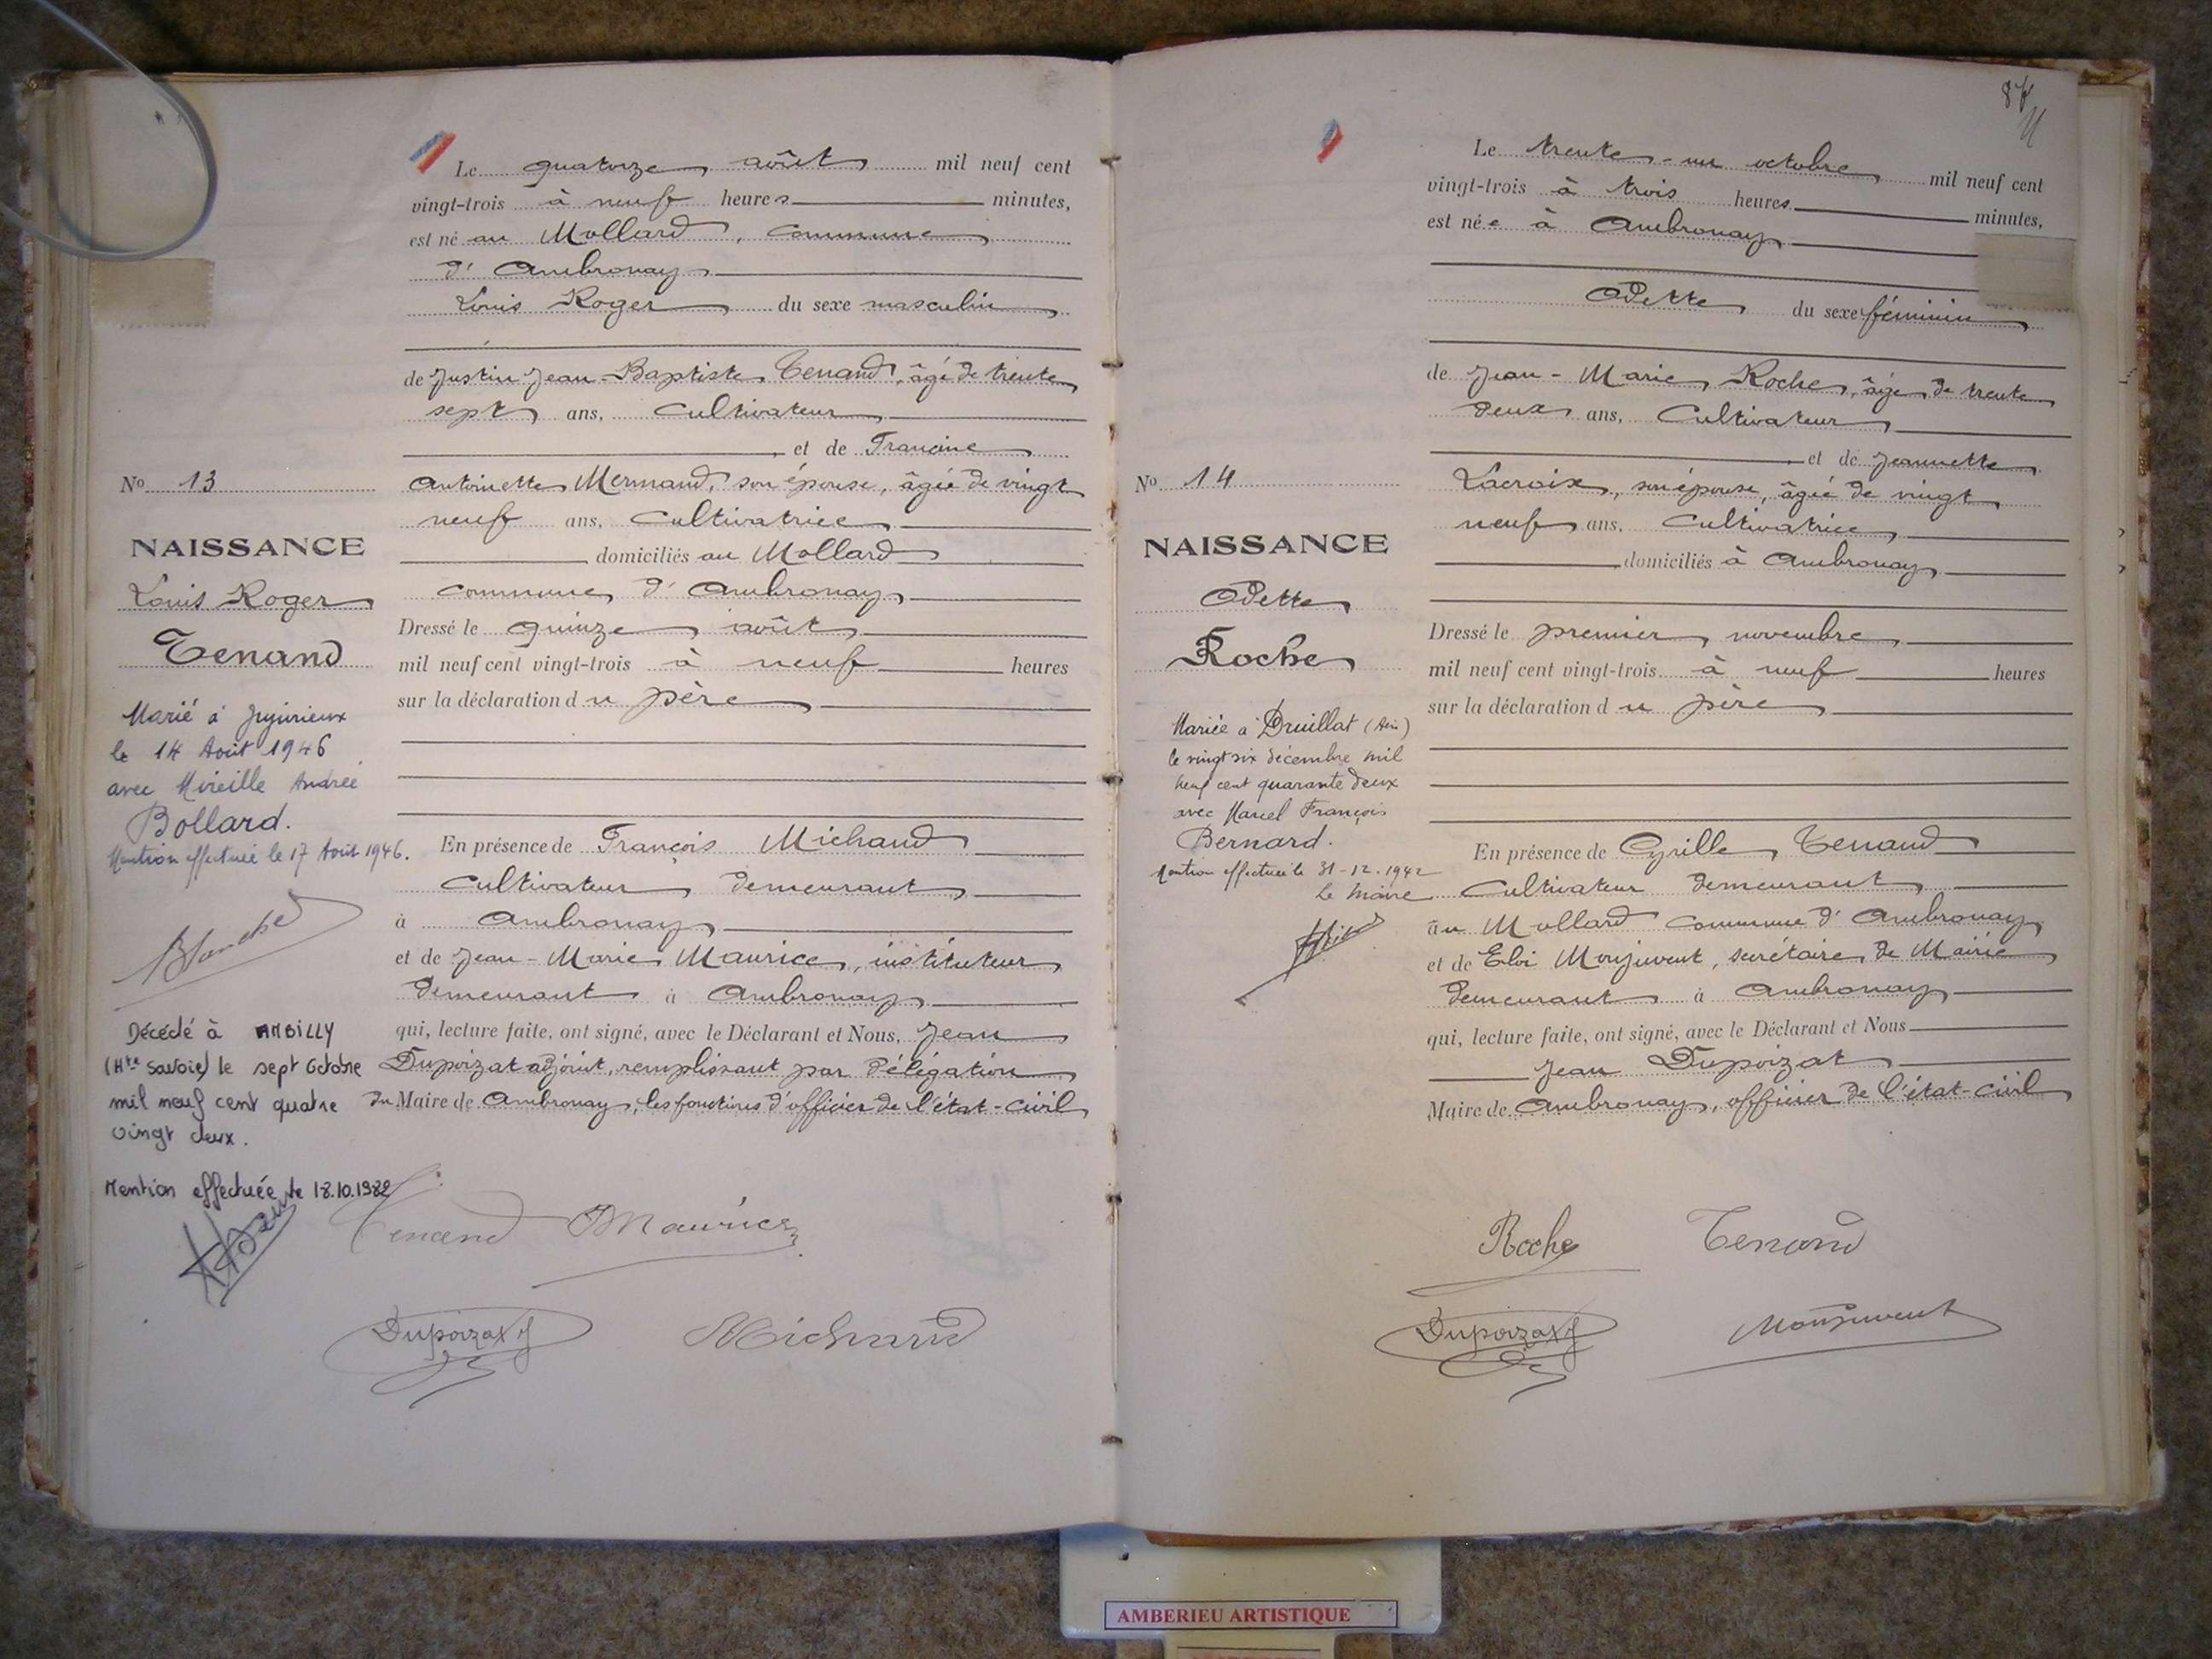 Le quatorze août mil neuf cent
vingt-trois à neuf heures minutes,
est né au Mollard, commune
d'Ambronay
Louis Roger du sexe masculin
de Justin Jean-Baptiste Tenand, âgé de trente
sept ans, Cultivateur
et de Francine
Antoinette Mermand, son épouse, âgée de vingt
neuf ans, Cultivatrice
domiciliés au Mollard
commune d'Ambronay
Dressé le quinze août
mil neuf cent vingt-trois à neuf heures
sur la déclaration du père
En présence de François Michaud
Cultivateur demeurant
à Ambronay
et de Jean-Marie Maurice, instituteur
demeurant à Ambronay
qui, lecture faite, ont signé, avec le Déclarant et Nous, Jean
Dupoizat adjoint, remplissant par délégation
du Maire de Ambronay, les fonctions d'officier de l'état-civil
No 13
NAISSANCE
Louis Roger
Tenand
Marié à Jujurieux
le 14 Août 1946
avec Mireille Andrée
Bollard.
Mention effectuée le 17 Août 1946.
Décédé à AMBILLY
(Hte Savoie) le sept Octobre
mil neuf cent quatre
vingt deux.
Mention effectuée le 18.10.1982
Tenand Maurice
Dupoizat J Michaud
Le trente-un octobre mil neuf cent
vingt-trois à trois heures minutes,
est née à Ambronay
Odette du sexe féminin
de Jean-Marie Roche, âgé de trente
deux ans, Cultivateur
et de Jeannette
Lacroix, son épouse, âgée de vingt
neuf ans, Cultivatrice
domiciliés à Ambronay
Dressé le premier novembre
mil neuf cent vingt-trois à neuf heures
sur la déclaration du père
En présence de Cyrille Tenand
Cultivateur demeurant
au Mollard commune d'Ambronay
et de Eloi Monjuvent, secrétaire de Mairie
demeurant à Ambronay
qui, lecture faite, ont signé, avec le Déclarant et Nous
Jean Dupoizat
Maire de Ambronay, officier de l'état-civil
No 14
NAISSANCE
Odette
Roche
Mariée à Druillat (Ain)
le vingt six décembre mil
neuf cent quarante deux
avec Marcel François
Bernard.
Mention effectuée le 31-12-1942
Le Maire
Roche Tenand
Dupoizat J Monjuvent
AMBERIEU ARTISTIQUE